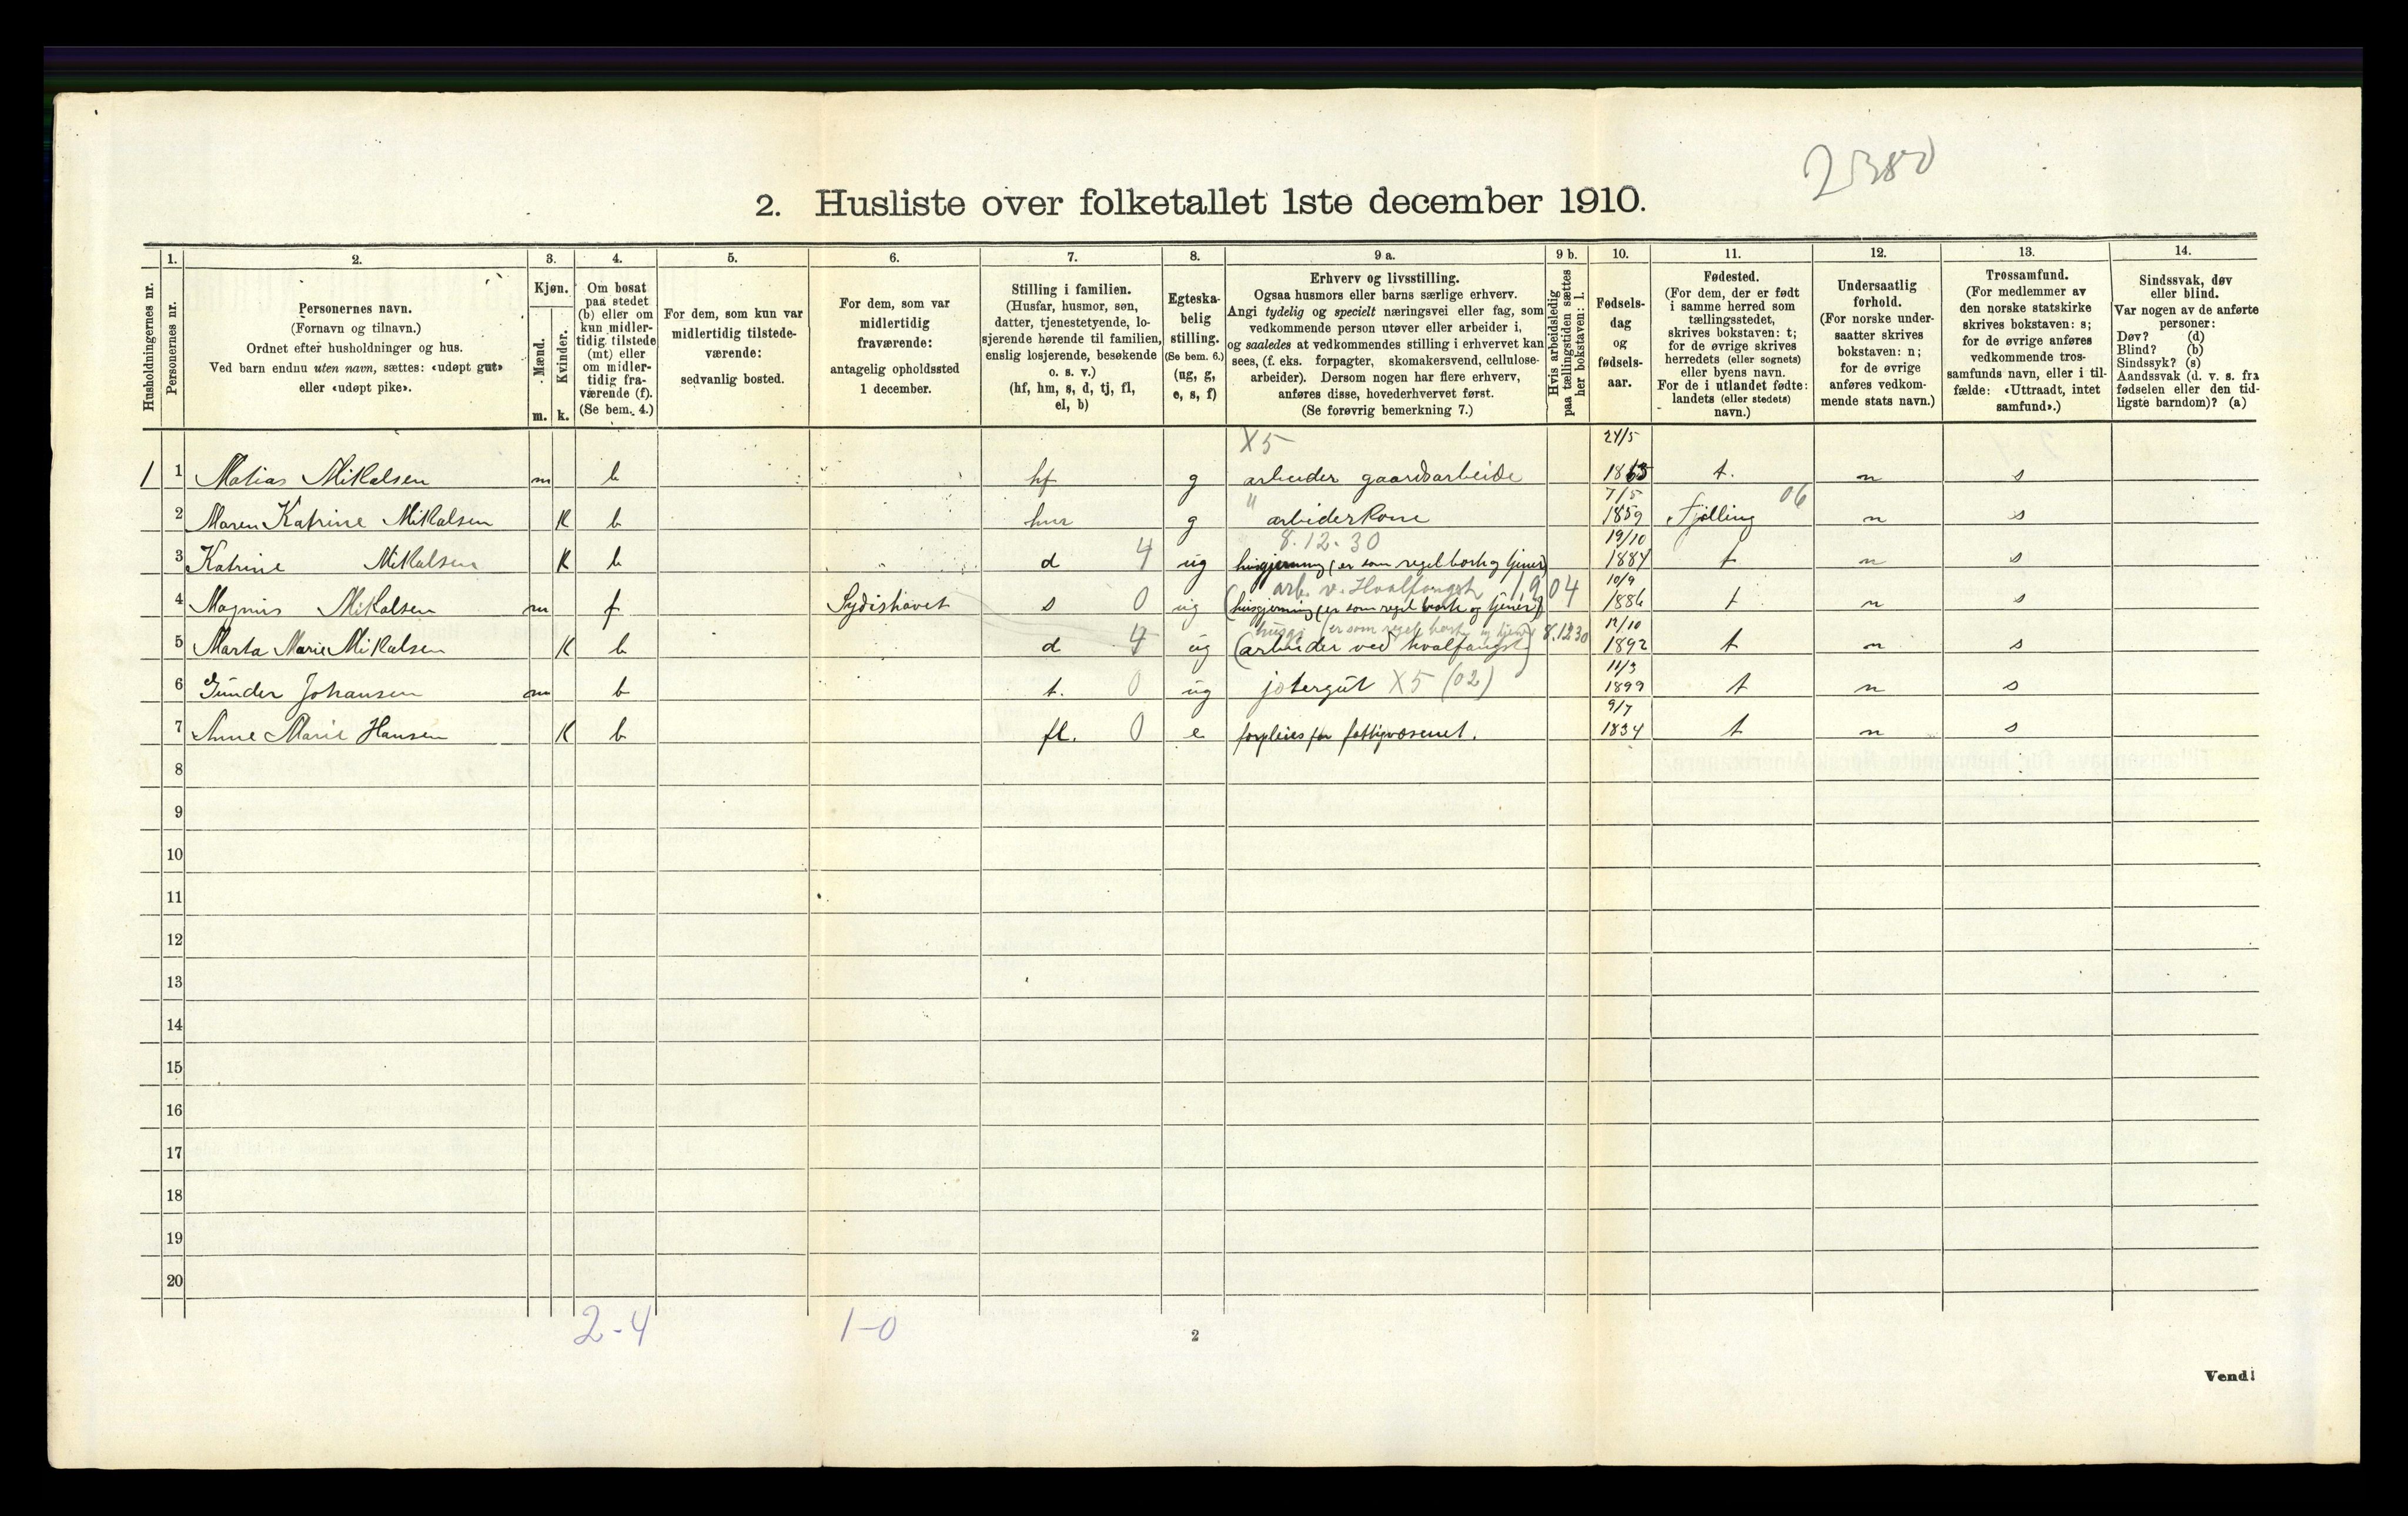 2380
2. Husliste over folketallet 1ste december 1910.
Husholdningernes nr.
1. Personernes nr.
2. Personernes navn.
(Fornavn og tilnavn.)
Ordnet efter husholdninger og hus.
Ved barn endnu uten navn, sættes: «udøpt gut»
eller «udøpt pike».
3. Kjøn.
Mænd. m.
Kvinder. k.
4. Om bosat
paa stedet
(b) eller om
kun midler-
tidig tilstede
(mt) eller
om midler-
tidig fra-
værende (f).
(Se bem. 4.)
5. For dem, som kun var
midlertidig tilstede-
værende:
sedvanlig bosted.
6. For dem, som var
midlertidig
fraværende:
antagelig opholdssted
1 december.
7. Stilling i familien.
(Husfar, husmor, søn,
datter, tjenestetyende, lo-
sjerende hørende til familien,
enslig losjerende, besøkende
o. s. v.)
(hf, hm, s, d, tj, fl,
el, b)
8. Egteska-
belig
stilling.
(Se bem. 6.)
(ug, g,
e, s, f)
9 a. Erhverv og livsstilling.
Ogsaa husmors eller barns særlige erhverv.
Angi tydelig og specielt næringsvei eller fag, som
vedkommende person utøver eller arbeider i,
og saaledes at vedkommendes stilling i erhvervet kan
sees, (f. eks. forpagter, skomakersvend, cellulose-
arbeider). Dersom nogen har flere erhverv,
anføres disse, hovederhvervet først.
(Se forøvrig bemerkning 7.)
9 b. Hvis arbeidsledig
paa tællingstiden sættes
her bokstaven: l.
10. Fødsels-
dag
og
fødsels-
aar.
11. Fødested.
(For dem, der er født
i samme herred som
tællingsstedet,
skrives bokstaven: t;
for de øvrige skrives
herredets (eller sognets)
eller byens navn.
For de i utlandet fødte:
landets (eller stedets)
navn.)
12. Undersaatlig
forhold.
(For norske under-
saatter skrives
bokstaven: n;
for de øvrige
anføres vedkom-
mende stats navn.)
13. Trossamfund.
(For medlemmer av
den norske statskirke
skrives bokstaven: s;
for de øvrige anføres
vedkommende tros-
samfunds navn, eller i til-
fælde: «Uttraadt, intet
samfund».)
14. Sindssvak, døv
eller blind.
Var nogen av de anførte
personer:
Døv? (d)
Blind? (b)
Sindssyk? (s)
Aandssvak (d. v. s. fra
fødselen eller den tid-
ligste barndom)? (a)
X5 24/5
1 1 Matias Mikalsen m b hf g arbeider gaardsarbeide 1865 t. n s
" 7/5 06
2 Maren Katrine Mikalsen K b hm g arbeiderkone 1859 Tjølling n s
8.12.30 19/10
3 Katrine Mikalsen K b d 4 ug husgjerning (er som regel bort og tjener) 1884 t n s
arb. v. Hvalfangst 1,9 04 10/9
4 Magnus Mikalsen m f Sydishavet s 0 ug (husgjerning (er som regel bort og tjener) 1886 t n s
husgj (er som regel bort og tjener 8.12 30 12/10
5 Marta Marie Mikalsen K b d 4 ug (arbeider ved hvalfangst) 1892 t n s
11/3
6 Gunder Johansen m b t. 0 ug jætergut X5 (02) 1899 t n s
9/7
7 Anne Marie Hansen K b fl. 0 e forpleies for fattigvæsenet. 1834 t n s
8
9
10
11
12
13
14
15
16
17
18
19
20
2-4 1-0
2
Vend!